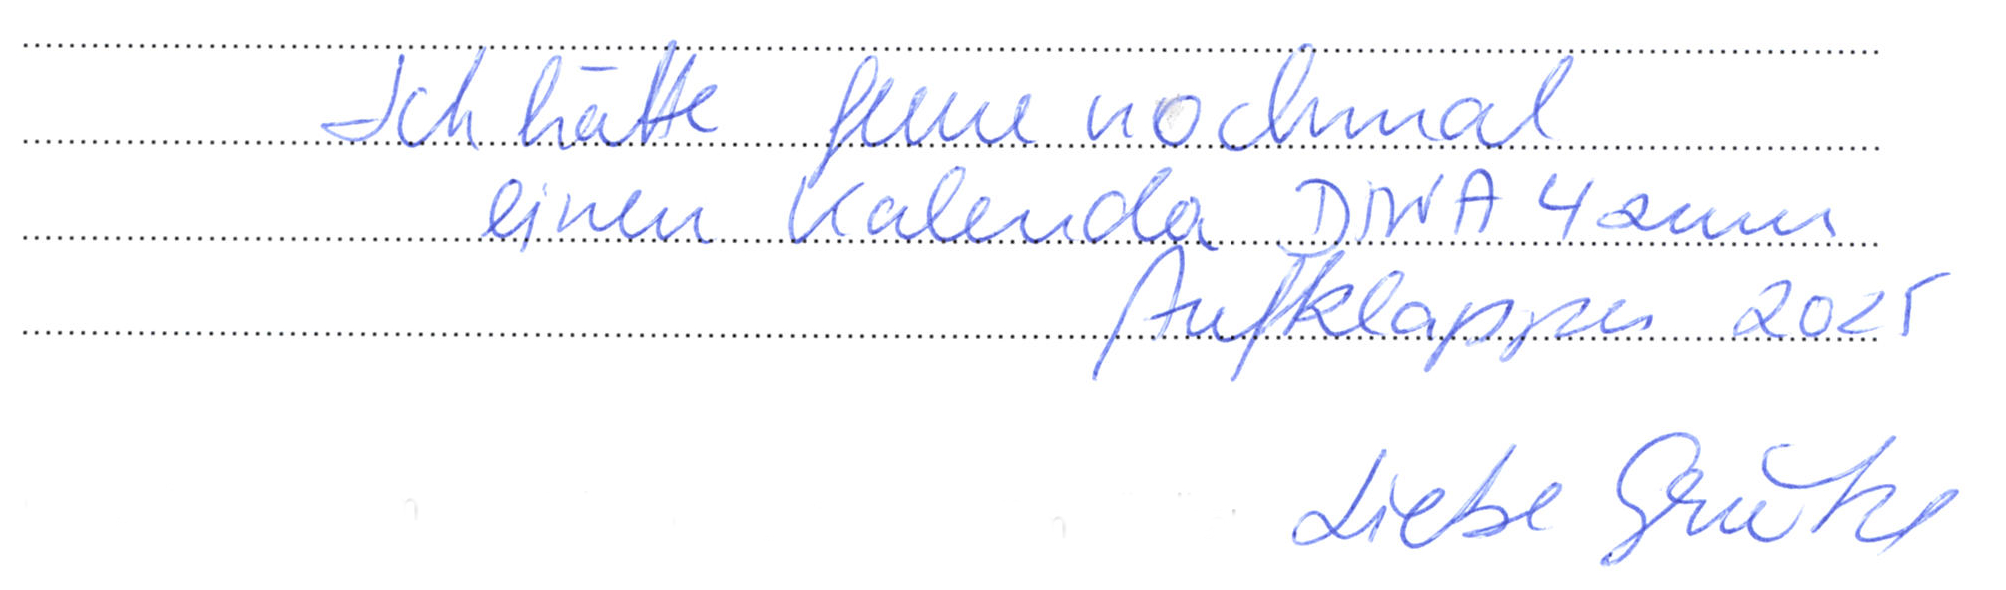 Ich hätte gerne nochmal
einen Kalender DIN A 4 zum
Aufklappen 2025
Liebe Grüße